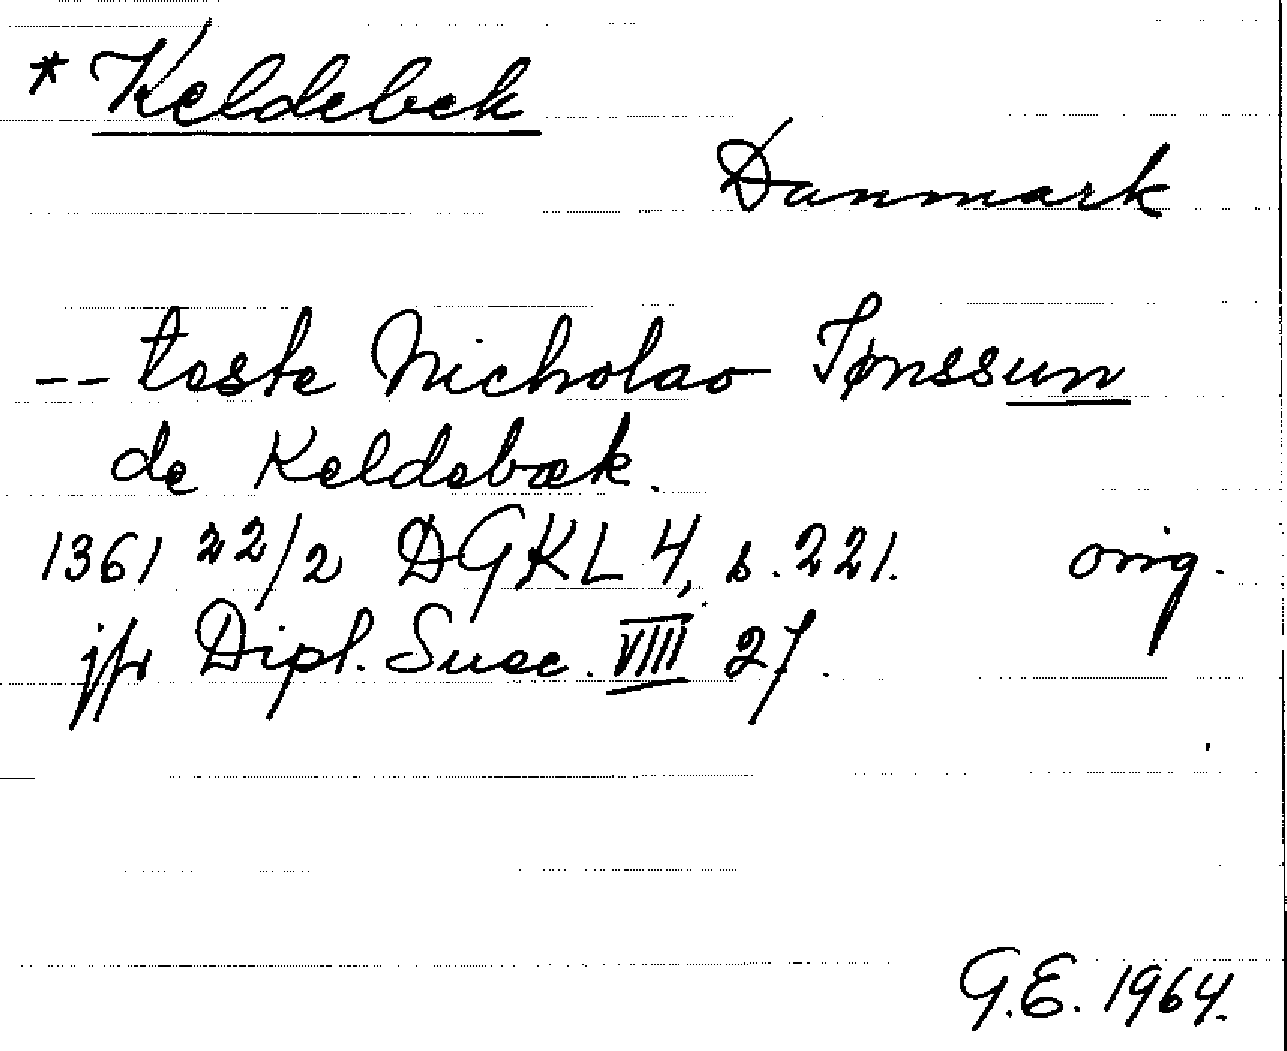 * Keldebek
Danmark
-- teste Nicholao Jønssun
de Keldebæk.
1361 22/2 DGKL 4, s. 221. orig.
jfr Dipl. Suec. VIII 27.
G.E. 1964.